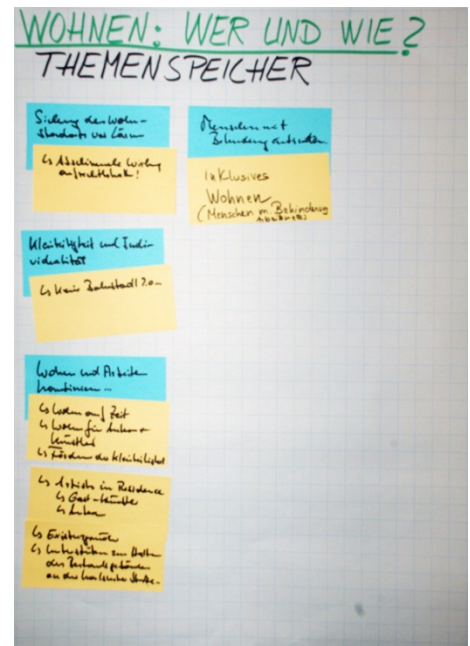 WOHNEN: WER UND WIE?
THEMENSPEICHER
Sicherung des Wohn-
standorts vor Lärm
↳ Abschirmende Wirkung
aufrechterhalten!
Menschen mit
Behinderung
Inklusives
Wohnen
(Menschen m. Behinderung
Kleinteiligkeit und Indi-
vidualität
↳ Keine Bahnstadt 2.0
Wohnen und Arbeiten
kombinieren...
↳ Wohnen auf Zeit
↳ Wohnen für
Künstler
↳ Fördern der Kleinteiligkeit
↳ Artists in Residence
↳ Gast-Künstler
↳ Existenzgründer
↳ zum
der Bestandsgebäude
an der